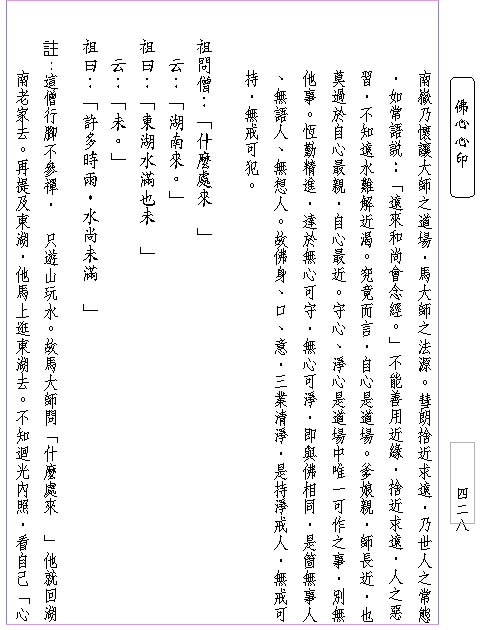 佛心心印
四二八
南嶽乃懷讓大師之道場，馬大師之法源。彗朗捨近求遠，乃世人之常態
，如常語說：「遠來和尚會念經。」不能善用近緣，捨近求遠，人之惡
習，不知遠水難解近渴。究竟而言，自心是道場。爹娘親，師長近，也
莫過於自心最親，自心最近。守心、淨心是道場中唯一可作之事，別無
他事。恆勤精進，達於無心可守，無心可淨，即與佛相同，是箇無事人
、無語人、無想人。故佛身、口、意，三業清淨，是持淨戒人，無戒可
持，無戒可犯。
祖問僧：「什麼處來　」
云：「湖南來。」
祖曰：「東湖水滿也未　」
云：「未。」
祖曰：「許多時雨，水尚未滿　」
註：這僧行腳不參禪，　只遊山玩水。故馬大師問「什麼處來　」他就回湖
南老家去。再提及東湖，他馬上逛東湖去。不知迴光內照，看自己「心